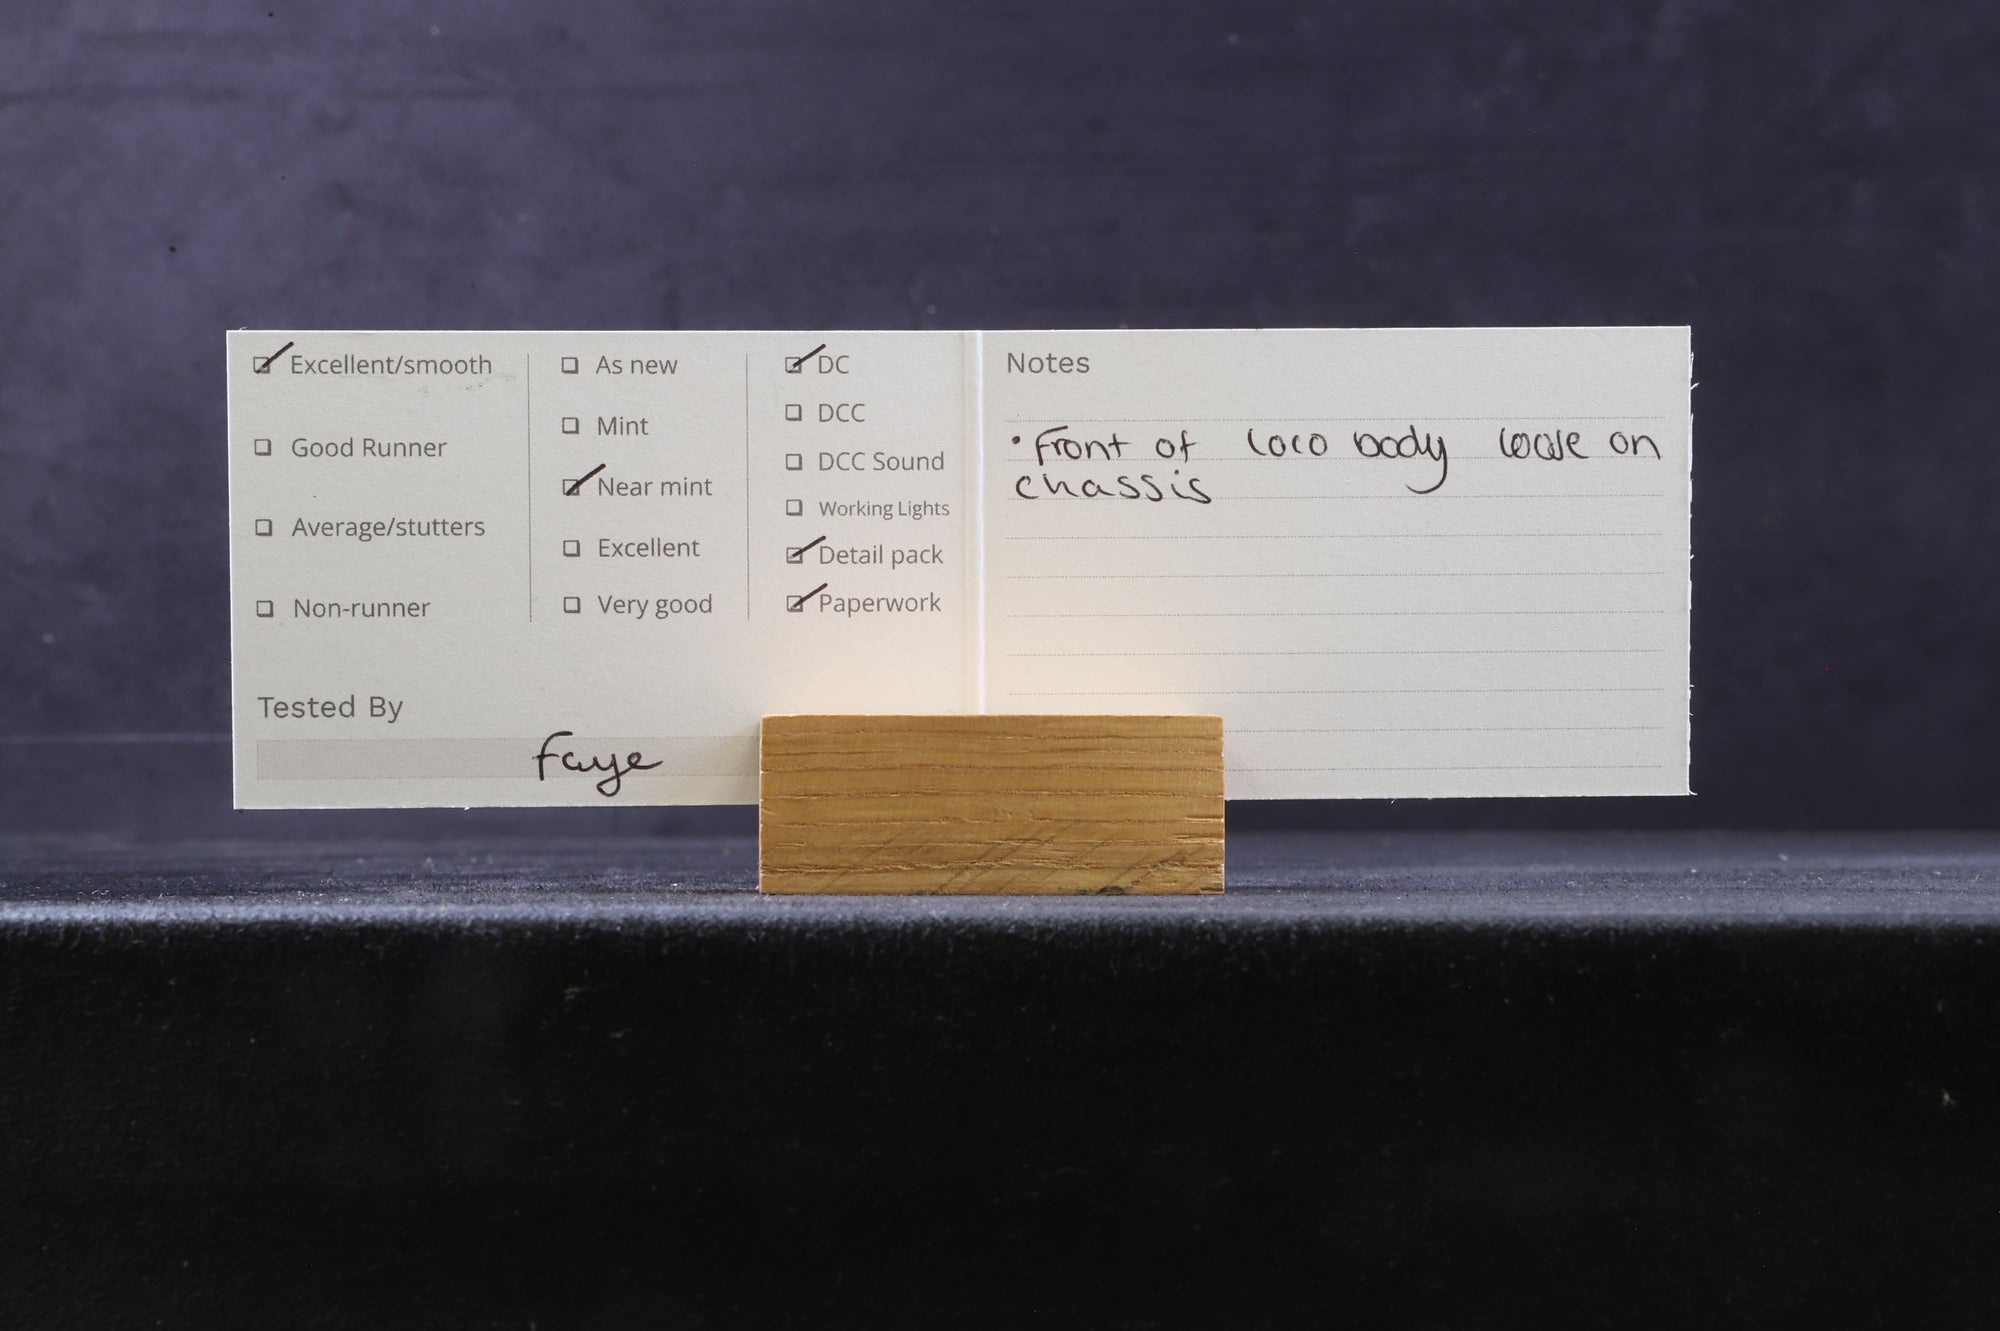 Excellent/smooth
Good Runner
Average/stutters
Non-runner
As new
Mint
Near mint
Excellent
Very good
DC
DCC
DCC Sound
Working Lights
Detail pack
Paperwork
Tested By
Faye
Notes
• Front of loco body loose on
chassis